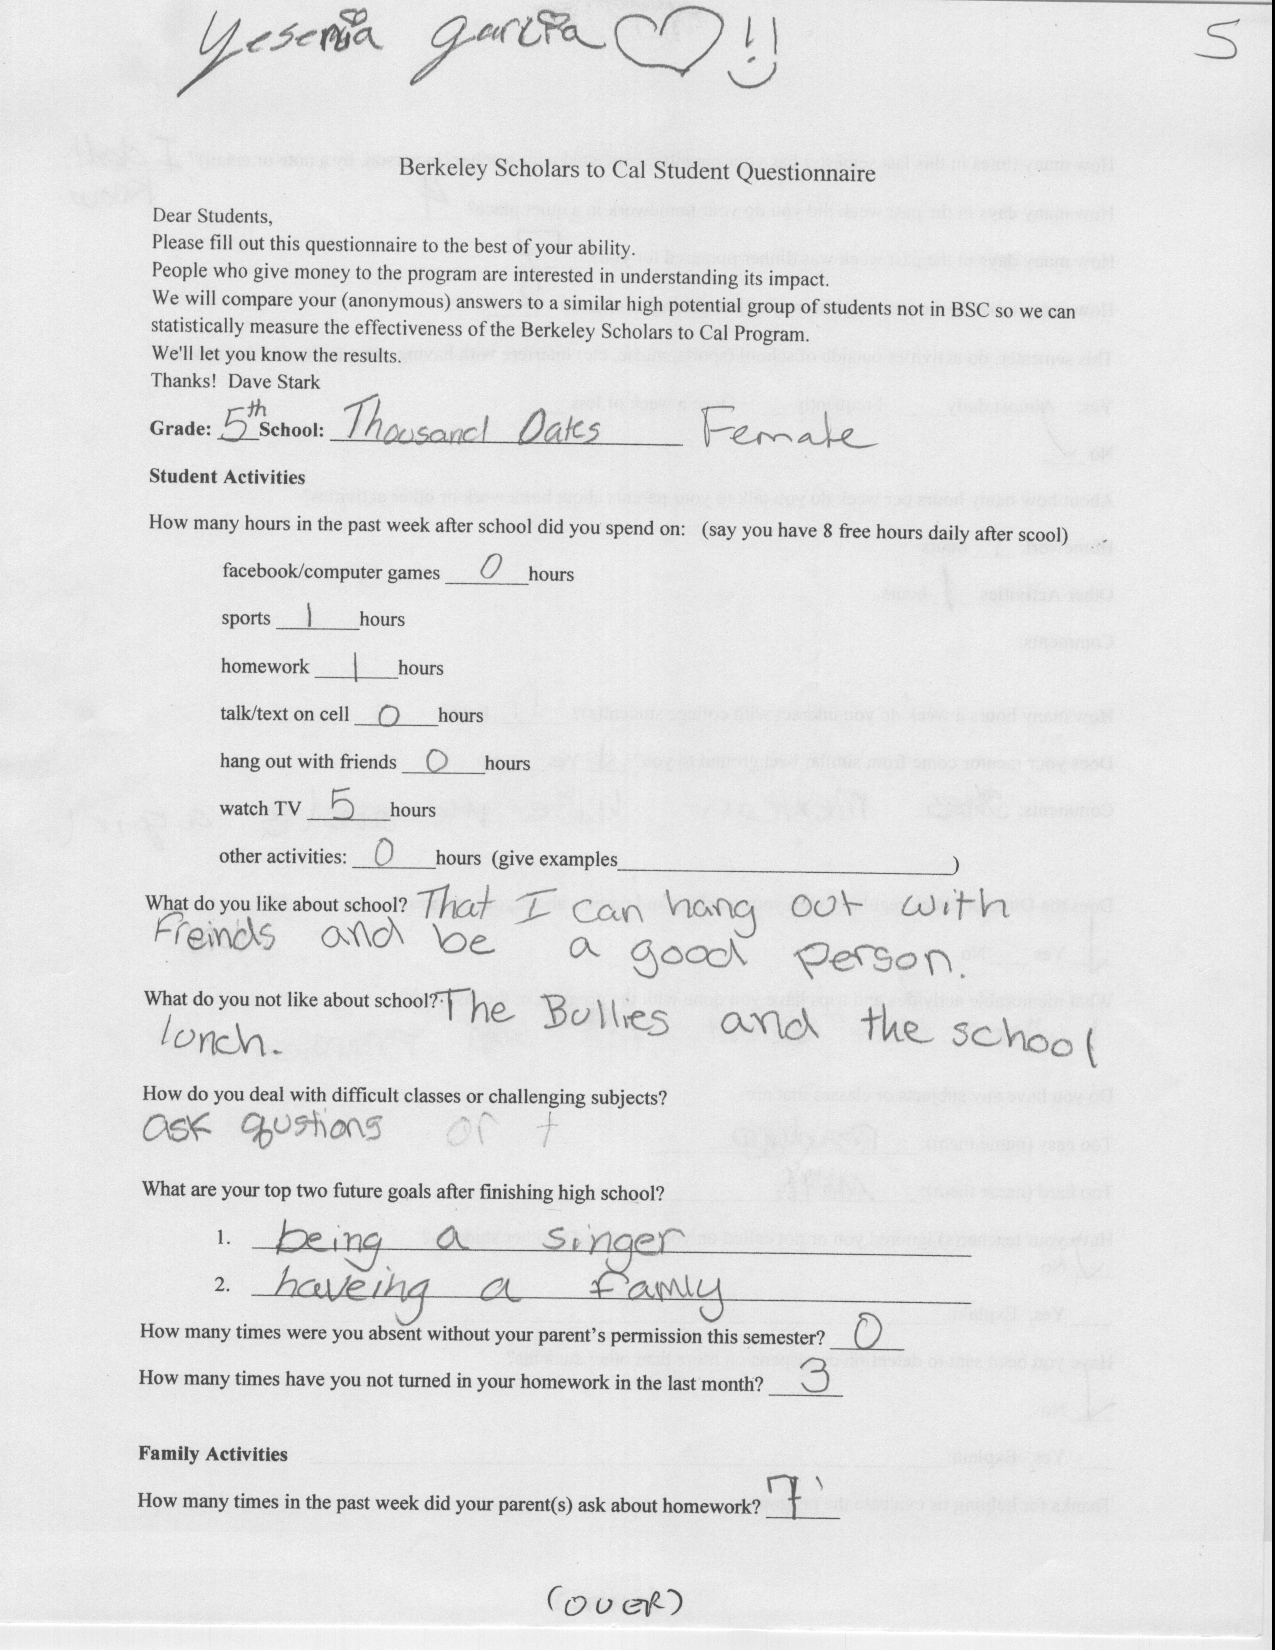 Yesenia garcia !!
5
Berkeley Scholars to Cal Student Questionnaire
Dear Students,
Please fill out this questionnaire to the best of your ability.
People who give money to the program are interested in understanding its impact.
We will compare your (anonymous) answers to a similar high potential group of students not in BSC so we can
statistically measure the effectiveness of the Berkeley Scholars to Cal Program.
We'll let you know the results.
Thanks! Dave Stark
Grade: 5th School: Thousand Oaks Female
Student Activities
How many hours in the past week after school did you spend on: (say you have 8 free hours daily after scool)
facebook/computer games 0 hours
sports 1 hours
homework 1 hours
talk/text on cell 0 hours
hang out with friends 0 hours
watch TV 5 hours
other activities: 0 hours (give examples )
What do you like about school? That I can hang out with
Freinds and be a good person.
What do you not like about school? The Bullies and the school
lunch.
How do you deal with difficult classes or challenging subjects?
ask qustions or t
What are your top two future goals after finishing high school?
1. being a singer
2. haveing a famly
How many times were you absent without your parent's permission this semester? 0
How many times have you not turned in your homework in the last month? 3
Family Activities
How many times in the past week did your parent(s) ask about homework? 7
(OVER)